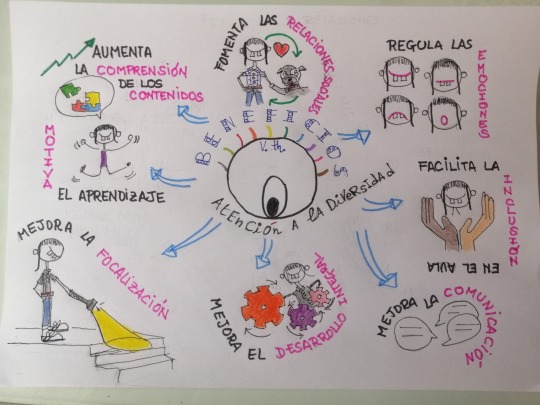 BENEFICIOS
V.th
AtEncIón A la DIvERsIdAd
AUMENTA
LA COMPRENSIÓN
DE LOS
CONTENIDOS
FOMENTA LAS RELACIONES SOCIALES
REGULA LAS
EMOCIONES
MOTIVA
EL APRENDIZAJE
FACILITA LA
INCLUSIÓN
EN EL AULA
MEJORA LA
FOCALIZACIÓN
MEJORA EL DESARROLLO
INTEGRAL
MEJORA LA COMUNICACIÓN